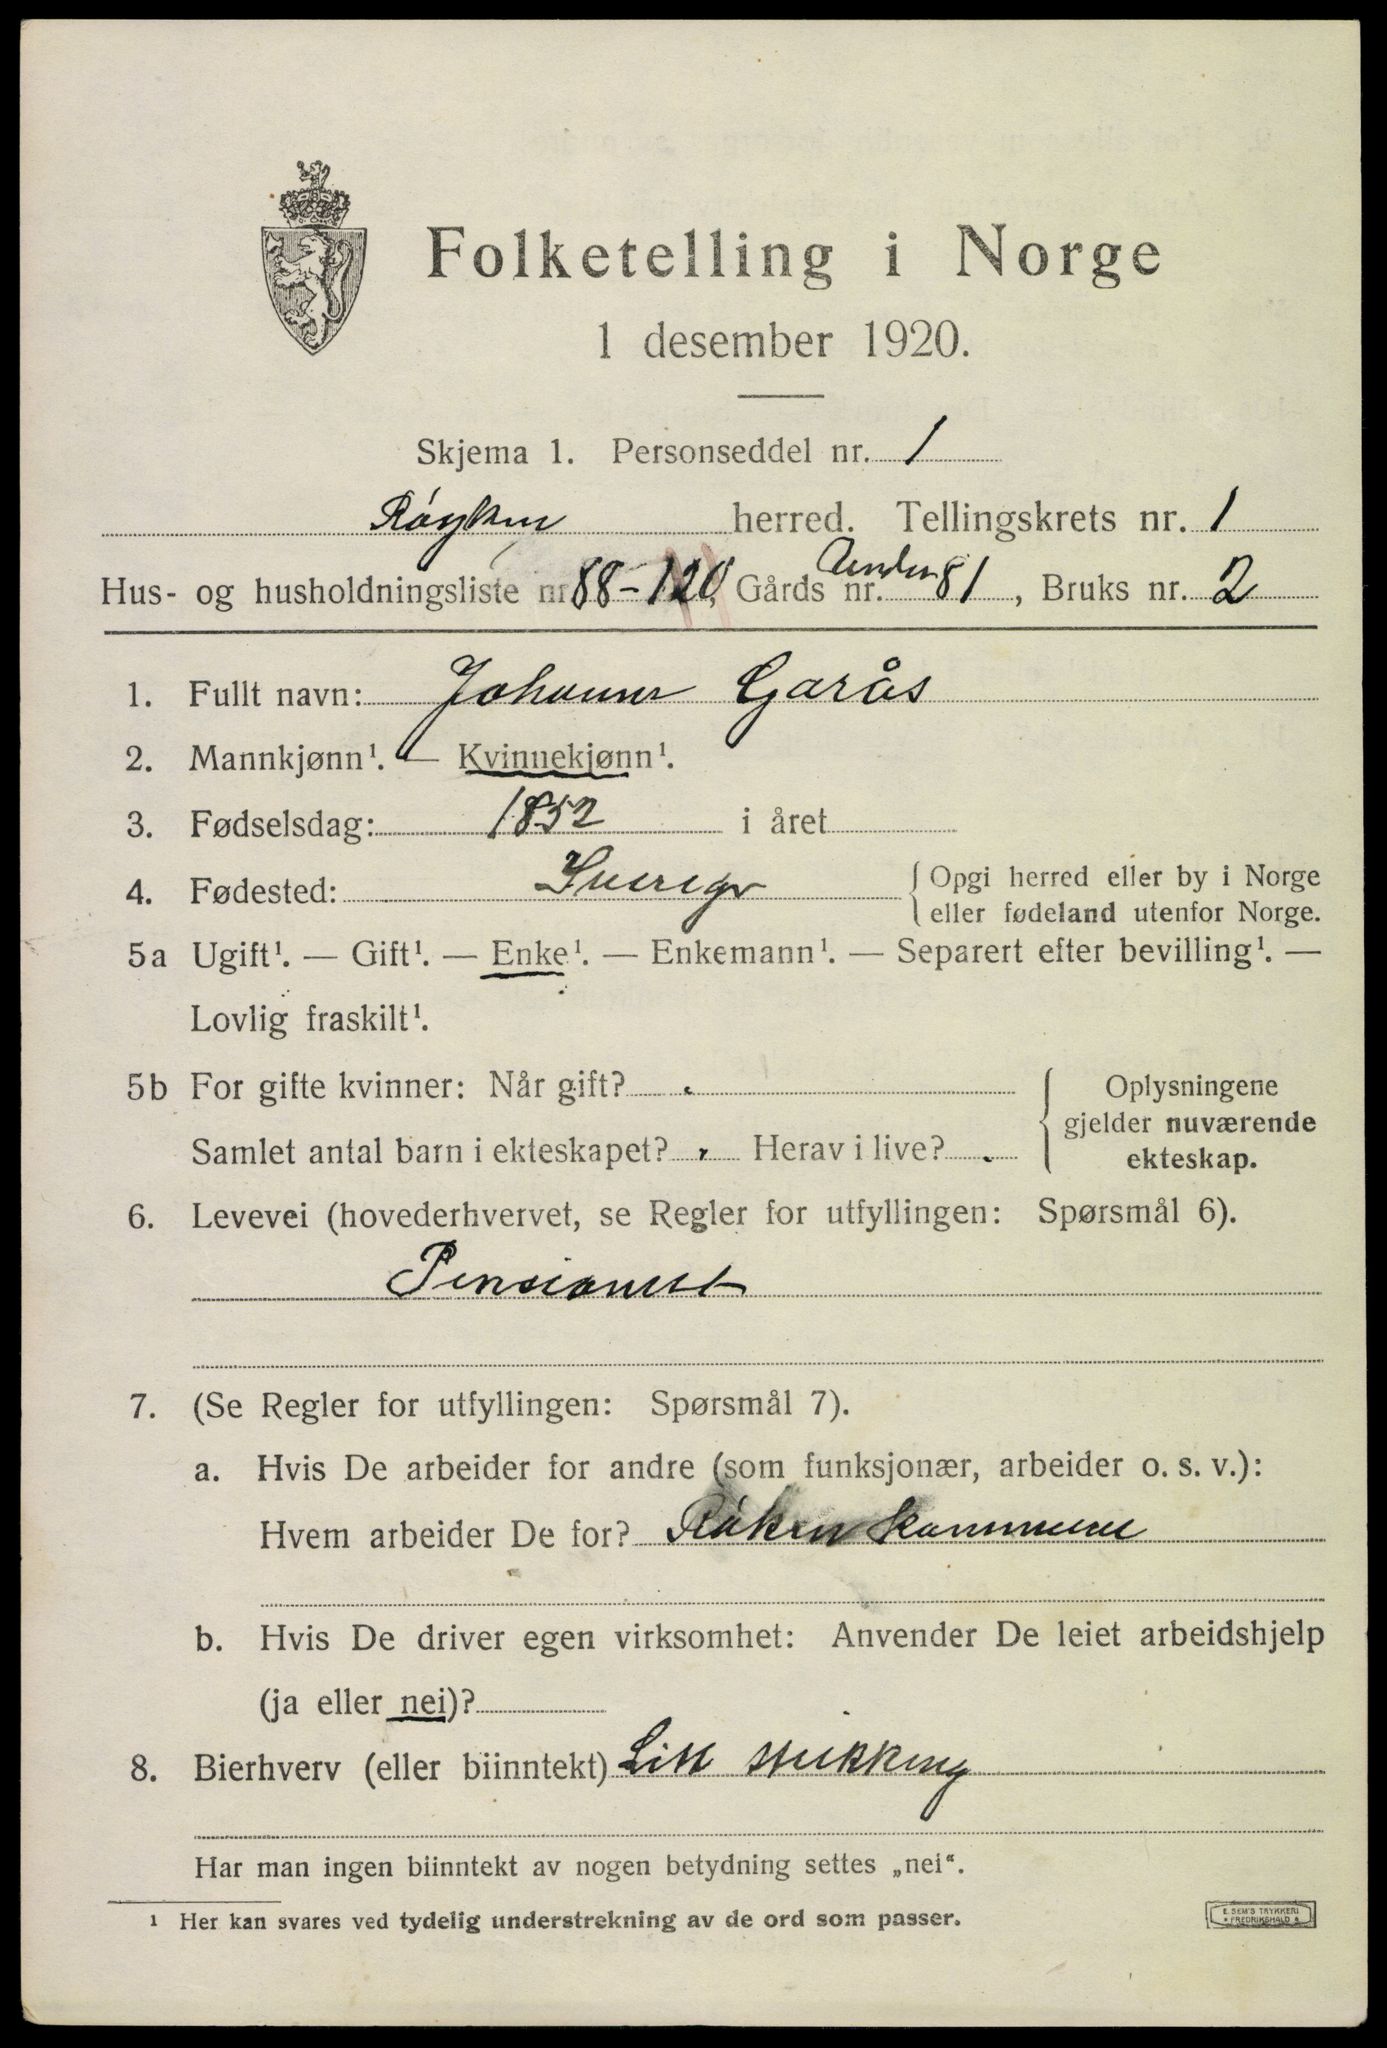 Folketelling i Norge
1 desember 1920.
Skjema 1. Personseddel nr. 1
Røyken herred. Tellingskrets nr. 1
Hus- og husholdningsliste nr. 88-120, Gårds nr. Under 81, Bruks nr. 2
1. Fullt navn: Johanne Garås
2. Mannkjønn¹. — Kvinnekjønn¹.
3. Fødselsdag: 1852 i året
4. Fødested: Sverige { Opgi herred eller by i Norge
eller fødeland utenfor Norge.
5a Ugift¹. — Gift¹. — Enke¹. — Enkemann¹. — Separert efter bevilling¹. —
Lovlig fraskilt¹.
5b For gifte kvinner: Når gift? { Oplysningene
gjelder nuværende
Samlet antal barn i ekteskapet? Herav i live? ekteskap.
6. Levevei (hovederhvervet, se Regler for utfyllingen: Spørsmål 6).
Pensionist
7. (Se Regler for utfyllingen: Spørsmål 7).
a. Hvis De arbeider for andre (som funksjonær, arbeider o. s. v.):
Hvem arbeider De for? Røken kommune
b. Hvis De driver egen virksomhet: Anvender De leiet arbeidshjelp
(ja eller nei)?
8. Bierhverv (eller biinntekt) Litt strikking
Har man ingen biinntekt av nogen betydning settes „nei“.
¹ Her kan svares ved tydelig understrekning av de ord som passer.
E. SEM'S TRYKKERI
FREDRIKSHALD